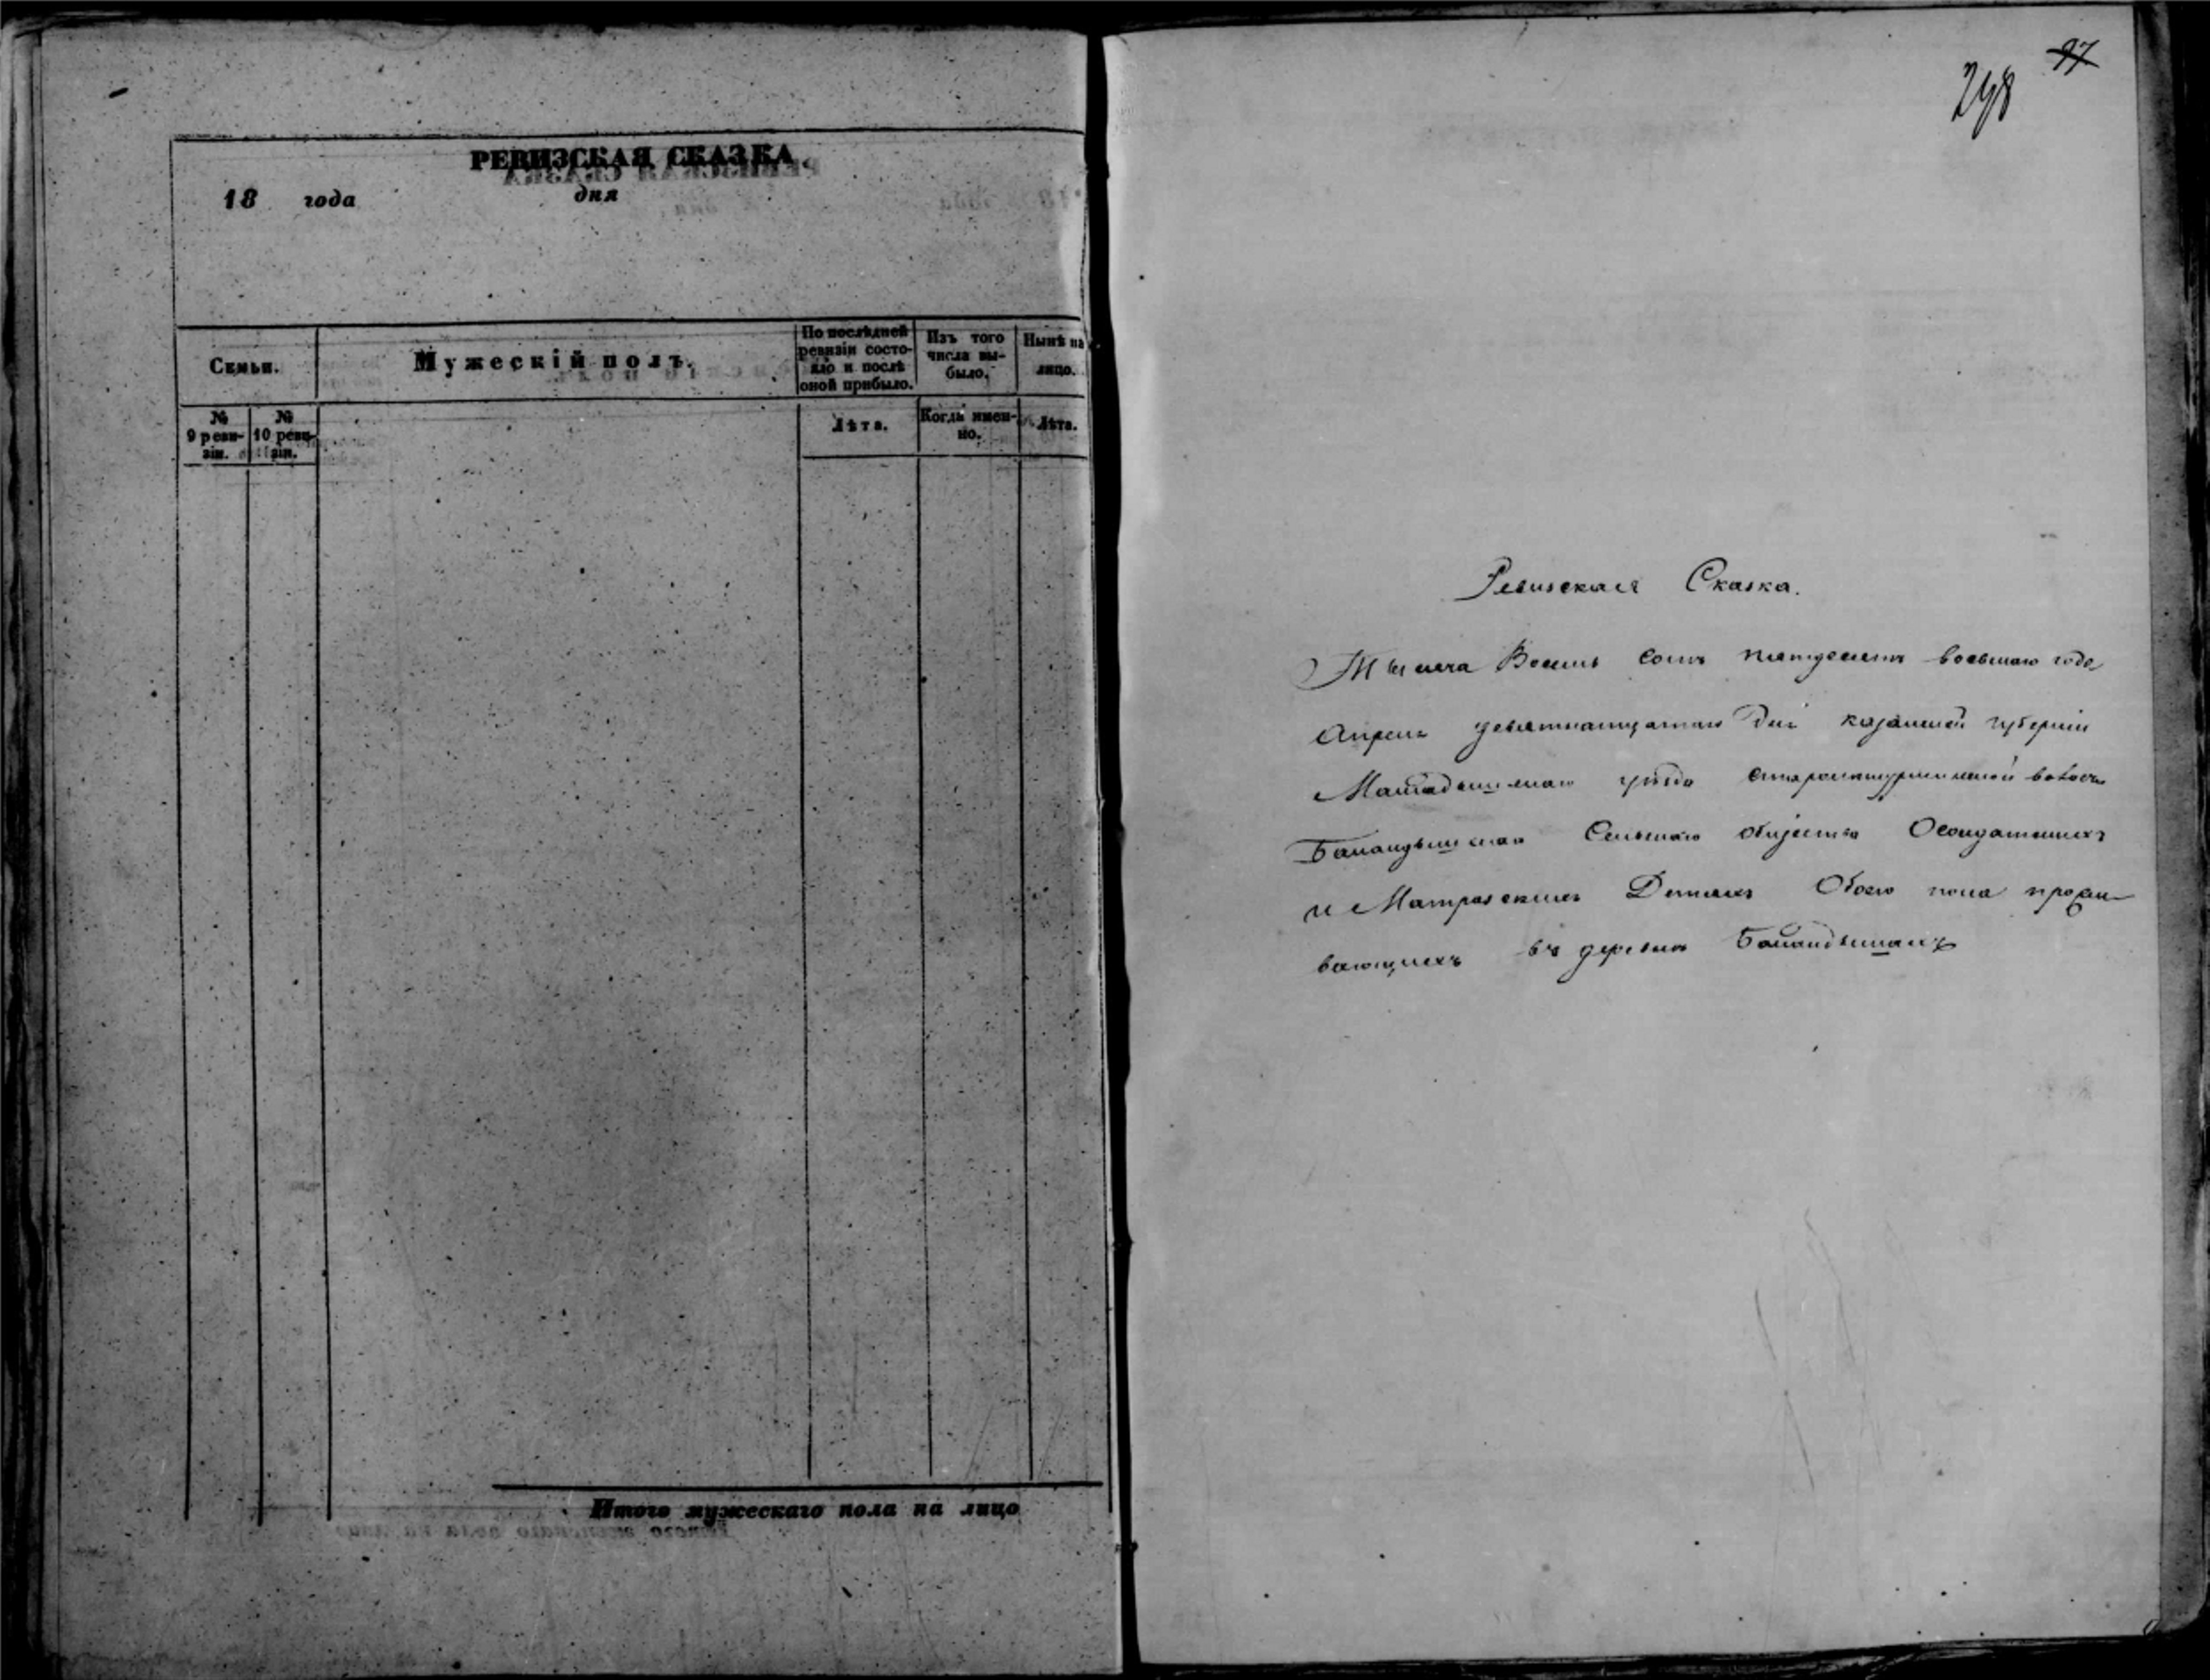 РЕВИЗСКАЯ СКАЗКА
18 года дня
Семьи.
Мужескій полъ.
По послѣдней ревизіи состояло и послѣ оной прибыло.
Изъ того числа выбыло.
Нынѣ на лицо.
№ 9 ревизіи.
№ 10 ревизіи.
Лѣта.
Когда именно.
Лѣта.
Итого мужескаго пола на лицо
248 97
Ревизская Сказка.
Тысяча Восемь сотъ пятдесятъ восьмаго года
Апреля девятнатцатаго дня казанской губерніи
Мамадышскаго уѣзда
Сельскаго общества Солдатскихъ
и Матрозскихъ Детяхъ Обоего пола прожи-
вающихъ въ деревни